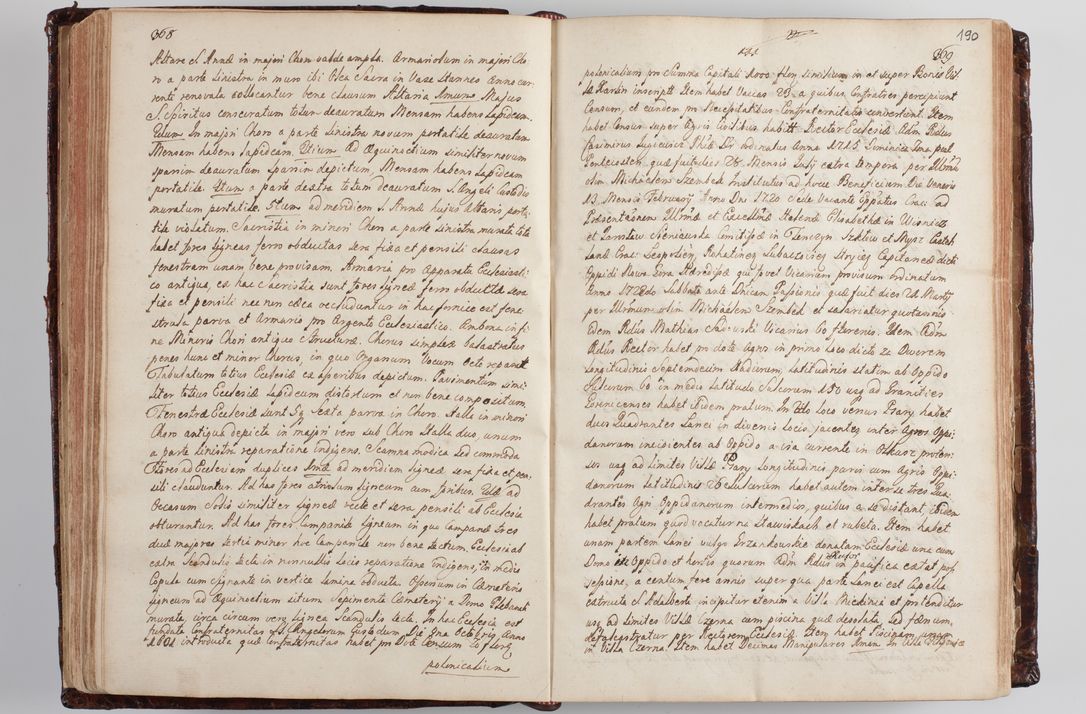 368
Altare S. Annæ in majori Choro valde ampla. Armariolum in majori Cho
ro a parte sinistra in muro ibi Olea Sacra in Vase Stanneo Anno cur
renti renovata collocantur bene clausum Altaria Imum Majus
S. Spiritus consecratum totum deauratum Mensam habens lapideam.
2dum In majori Choro a parte sinistra novum portatile deauratum
Mensam habens lapideam. 3tium Ad Æquinoctium similiter novum
sparsim deauratum sparsim depictum, Mensam habens lapideam
portatile. 4tum a parte dextra totum deauratum S. Angeli Custodis
muratum portatile. 5tum ad meridiem S. Annæ hujus Altaris porta
tile violatum. Sacristia in minori Choro a parte sinistra murata tota
habet fores ligneas ferro obductas sera fixa et pensili clausas
fenestram unam bene provisam. Armaria pro Apparatu Ecclesiasti
co antiqua, ex hac Sacristia sunt fores ligneæ ferro obductæ sera
fixa et pensili nec non cæca recluduntur in hac fornice est fene
strula parva et Armario pro Argento Ecclesiastico. Ambona in fi
ne Minoris Chori antiquæ structuræ. Chorus simplex balastratus
penes hunc et minor Chorus, in quo Organum Vocum Octo reparat
Tabulatum totius Ecclesiæ ex asseribus depictum. Pavimentum simi
liter totius Ecclesiæ lapideum distortum et non bene compositum,
Fenestræ Ecclesiæ sunt 5q Sexta parva in Choro. Stalla in minori
Choro antiqua depicta in majori vero sub Choro Stalla duo, unum
a parte sinistra reparatione indigens. Scamna modica sed commoda
Fores ad Ecclesiam duplices Imæ ad meridiem ligneæ sera fixa et pen
sili clauduntur. Ad has fores atriolum ligneum cum foribus. 2dæ ad
Occasum Solis similiter ligneæ vecte et sera pensili ab Ecclesia
obturantur. Ad has fores Campanile ligneum in quo Campanæ tres
duæ majores tertia minor hoc Campanile non bene tectum. Ecclesia ab
extra Scandulis tecta in nonnullis locis reparatione indigens, in medio
Copula cum signante in vertice lamina obducta. Ossorium in Cæmeterio
ligneum ad Æquinoctium situm Sepimenta Cæmeterij a Domo Plebanali
murata circa circum vero lignea Scandulis tecta. In hac Ecclesia est
fundata Confraternitas SS. Angelorum Custodum Die 2na Octobris Anno
introducta quæ confraternitas habet pro Dote Censum 20 flor:
polonicalium
190
369
polonicalium pro Summa Capitali 4000 flor. similium in et super Bonis Vil
læ Karlin inscripta Item habet Vaccas 23 a quibus Confratres percipiunt
Censum, et eundem pro Necessitatibus Confraternitatis convertunt. Item
habet Census super Agris Civilibus Rector Ecclesiæ Adm Rdus
Casimirus ordinatus Anno 1715 Dominica Ima post
Pentecosten quæ fuit dies Mensis Julij extra tempora per Illmum
olim Michaelem Szembek Institutus ad hocce Beneficium Die Veneris
13 Mensis February Anno Dni 1720 Sede Vacante Eppatus Crac: ad
Præsentationem Illmæ et Excellmæ Helenæ Elisabethæ in Wisnicz
et Jarosław Sieniawska Comitissæ in Tenczyn Szklow et Mysz Castel
lanæ Crac: Rohatinen Lubaczovien Stryien Capitaneæ dicti
Oppidi Nova Gora Hæredissæ qui fovet Vicarium provisum ordinatum
Anno 1722do Sabbato ante Dnicam Passionis quæ fuit dies 21 Martij
per Illmum olim Michaelem Szembek et salariatur quotannis
idem Rdus Mathias Sadowski Vicarius 60 florenis. Item Adm
Rdus Rector habet pro dote Agros in primo loco dicto za Dworem
longitudinis septemdecim stadiorum, latitudinis statim ab Oppido
sulcorum 60 in medio latitudo Sulcorum 150 usq ad Granities
habet ibidem pratum. In 2do Loco versus Psary habet
duos Quadrantes Lanei in diversis locis jacentes inter Agros Oppi
danorum incipientes ab Oppido a via currente in Olkusz proten
sus usq ad limites Villæ Psary longitudinis paris cum Agris Oppi
danorum latitudinis 26 sulcorum habet autem inter se tres Qua
drantes Agri Oppidanorum intermedios, quibus a se distant, ibidem
habet pratum quod vocatur na Stawiskach et rubeta. Item habet
unam partem Lanei vulgo Trzankowskie donatam Ecclesiæ una cum
Domo in Oppido et hortis quorum Adm Rdus Rector in pacifica extat pos
sessione, a centum fere annis super qua parte Lanei est Capella
extructa S. Adalberti incipitur etenim a Villa Miękinia et protenditur
usq ad limites Villæ Czerna cum piscina quæ desolata, sed fænum,
defalcastratur per Rectorem Ecclesiæ. Item habet Piscinam unam
in Villa Czerna. Item habet Decimas Manipulares Imam in Villa